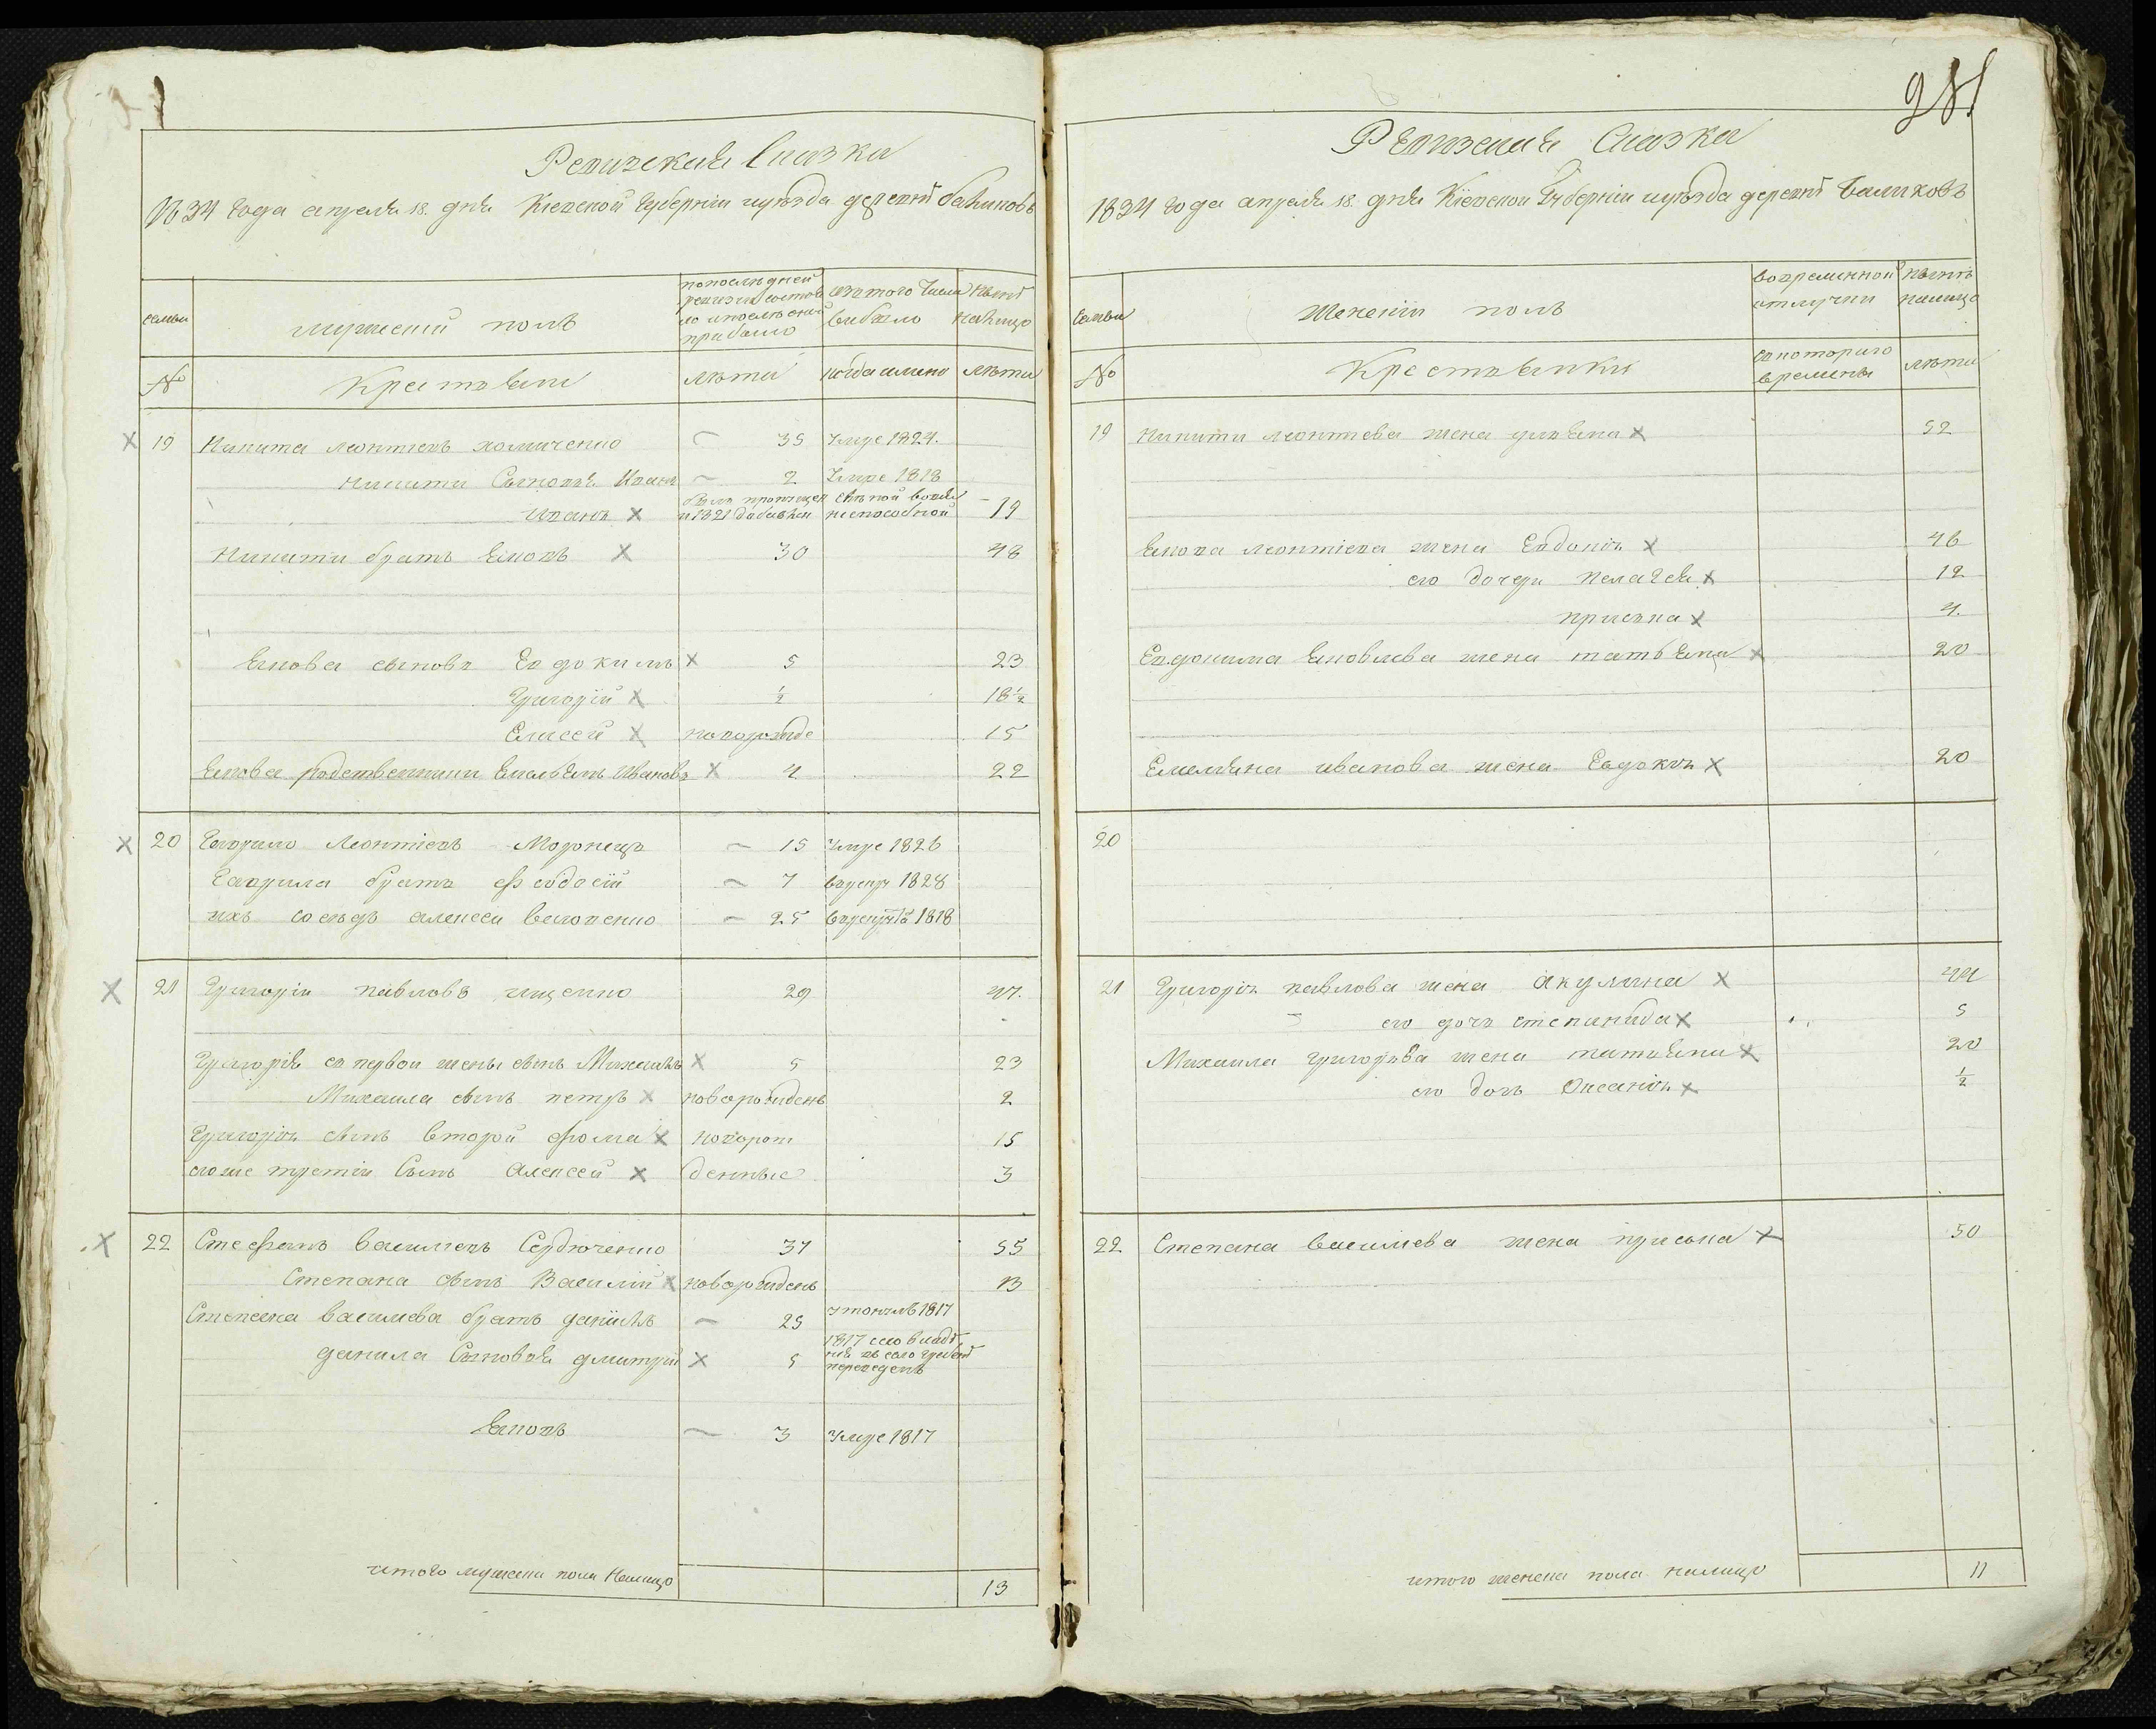 Ревизская Сказка
1834 года апреля 18. дня Кіевской Губерніи и уѣзда деревни Баликовъ
семьи
мужеский полъ
по последней ревизіи состояло и после оной прибыло
изъ того числа выбыло
ныне налицо
№
Крестьяни
лѣта
когда имено
лѣта
19 Никита леонтіевъ хомиченко 35 Умре 1824.
Никити Сыновья Иванъ 2 Умре 1818
Иванъ былъ пропущен и 1821 добавлен слепой вовся неспособной 19
Никити братъ Яковъ 30 48
Якова сыновъ Евдокимъ 5 23
Григорій ½ 18½
Елисей новорожде 15
Якова родственники Емельянъ Ивановъ 4 22
20 Гаврило Леонтіевъ Моронецъ 15 Умре 1826
Гаврила братъ Фeодосій 7 врекр 1828
ихъ соседъ алексей 25 1818
21 Григорій павловъ ищенко 29 47.
Григорія съ первои жены сынъ Михаилъ 5 23
Михаила сынъ петръ новорожденъ 2
Григорія сынъ второй фома новорож 15
его же третій Сынъ Алексей денные 3
22 Стефанъ василіевъ Сердюченко 37 55
Степана сынъ Василій новорожденъ 13
Степана василиева братъ даніилъ 25 утонулъ 1817
данила Сыновья дмитрій 5 1817 его владѣнія въ село переведенъ
Яковъ 3 Умре 1817
итого мужеска пола Налицо 13
281
Ревизская Сказка
1834 года апреля 18. дня Кіевской Губерніи и уѣзда деревни Баликовъ
семьи
Женскій полъ
во временной отлучки
ныне налицо
№
Крестьянки
съ которого времены
лѣта
19 Никити леонтиева жена улияна 52
Якова леонтіева жена Евдокія 46
его дочери пелагея 12
приська 4.
Евдокима Яковлева жена татьяна 20
Емелияна иванова жена Евдокія 20
20
21 Григорія павлова жена Акулина 44
его дочь степанида 5
Михаила григориева жена татьяна 20
его дочь Оксанія ½
22 Степана василиева жена приська 50
итого женска пола налицо 11